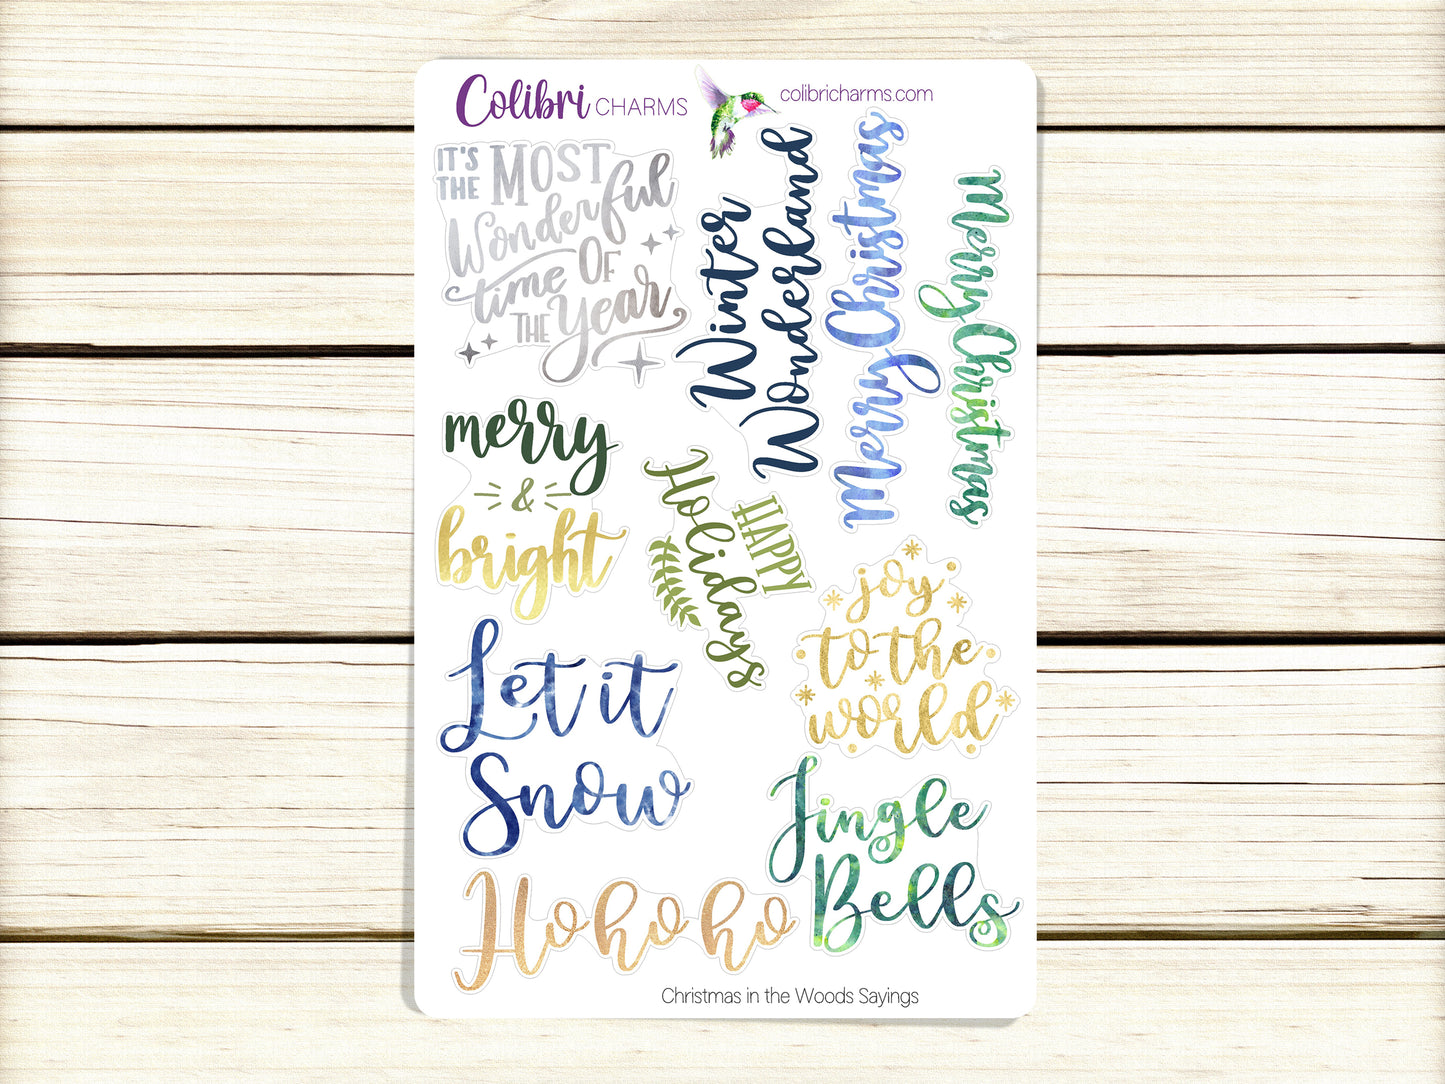 Colibri CHARMS
colibricharms.com
IT'S
THE MOST
Wonderful
time OF
THE Year
Winter
Wonderland
Merry Christmas
Merry Christmas
merry
&
bright
HAPPY
Holidays
joy
to the
world
Let it
Snow
Jingle
Bells
Ho ho ho
Christmas in the Woods Sayings